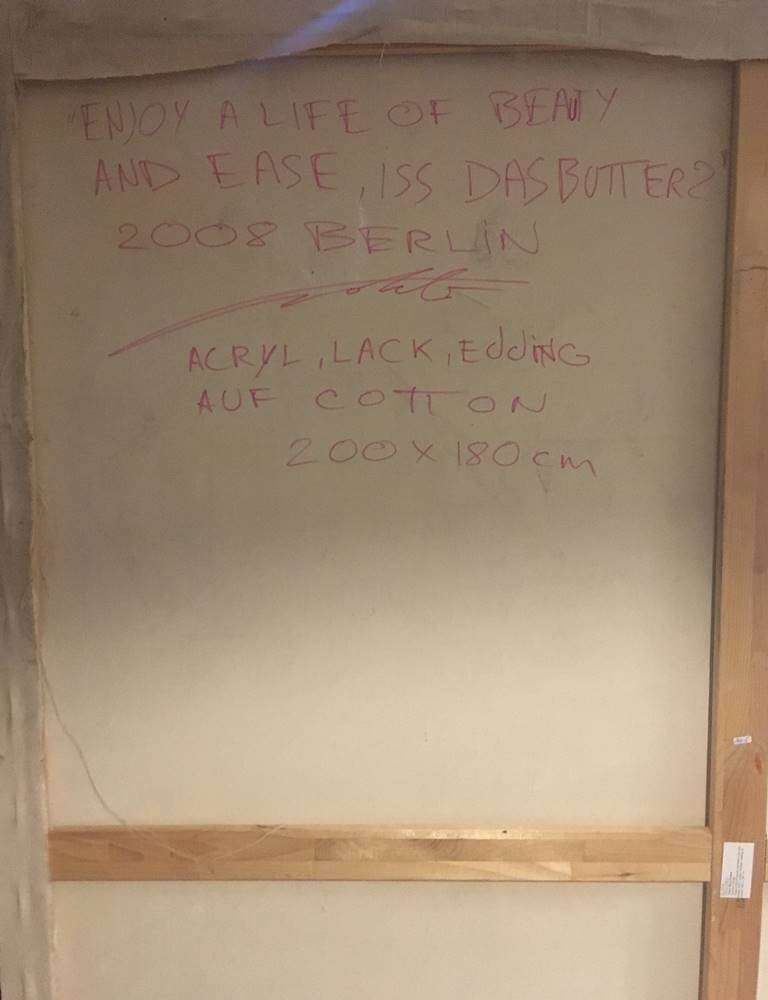 "ENJOY A LIFE OF BEAUTY
AND EASE, ISS DAS BUTTER?"
2008 BERLIN
ACRYL, LACK, EddiNG
AUF COTTON
200 X 180 cm